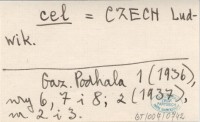 cel = CZECH Lud-
wik.
Gaz. Podhala 1 (1936),
nry 6, 7 i 8; 2 (1937),
nr 2 i 3.